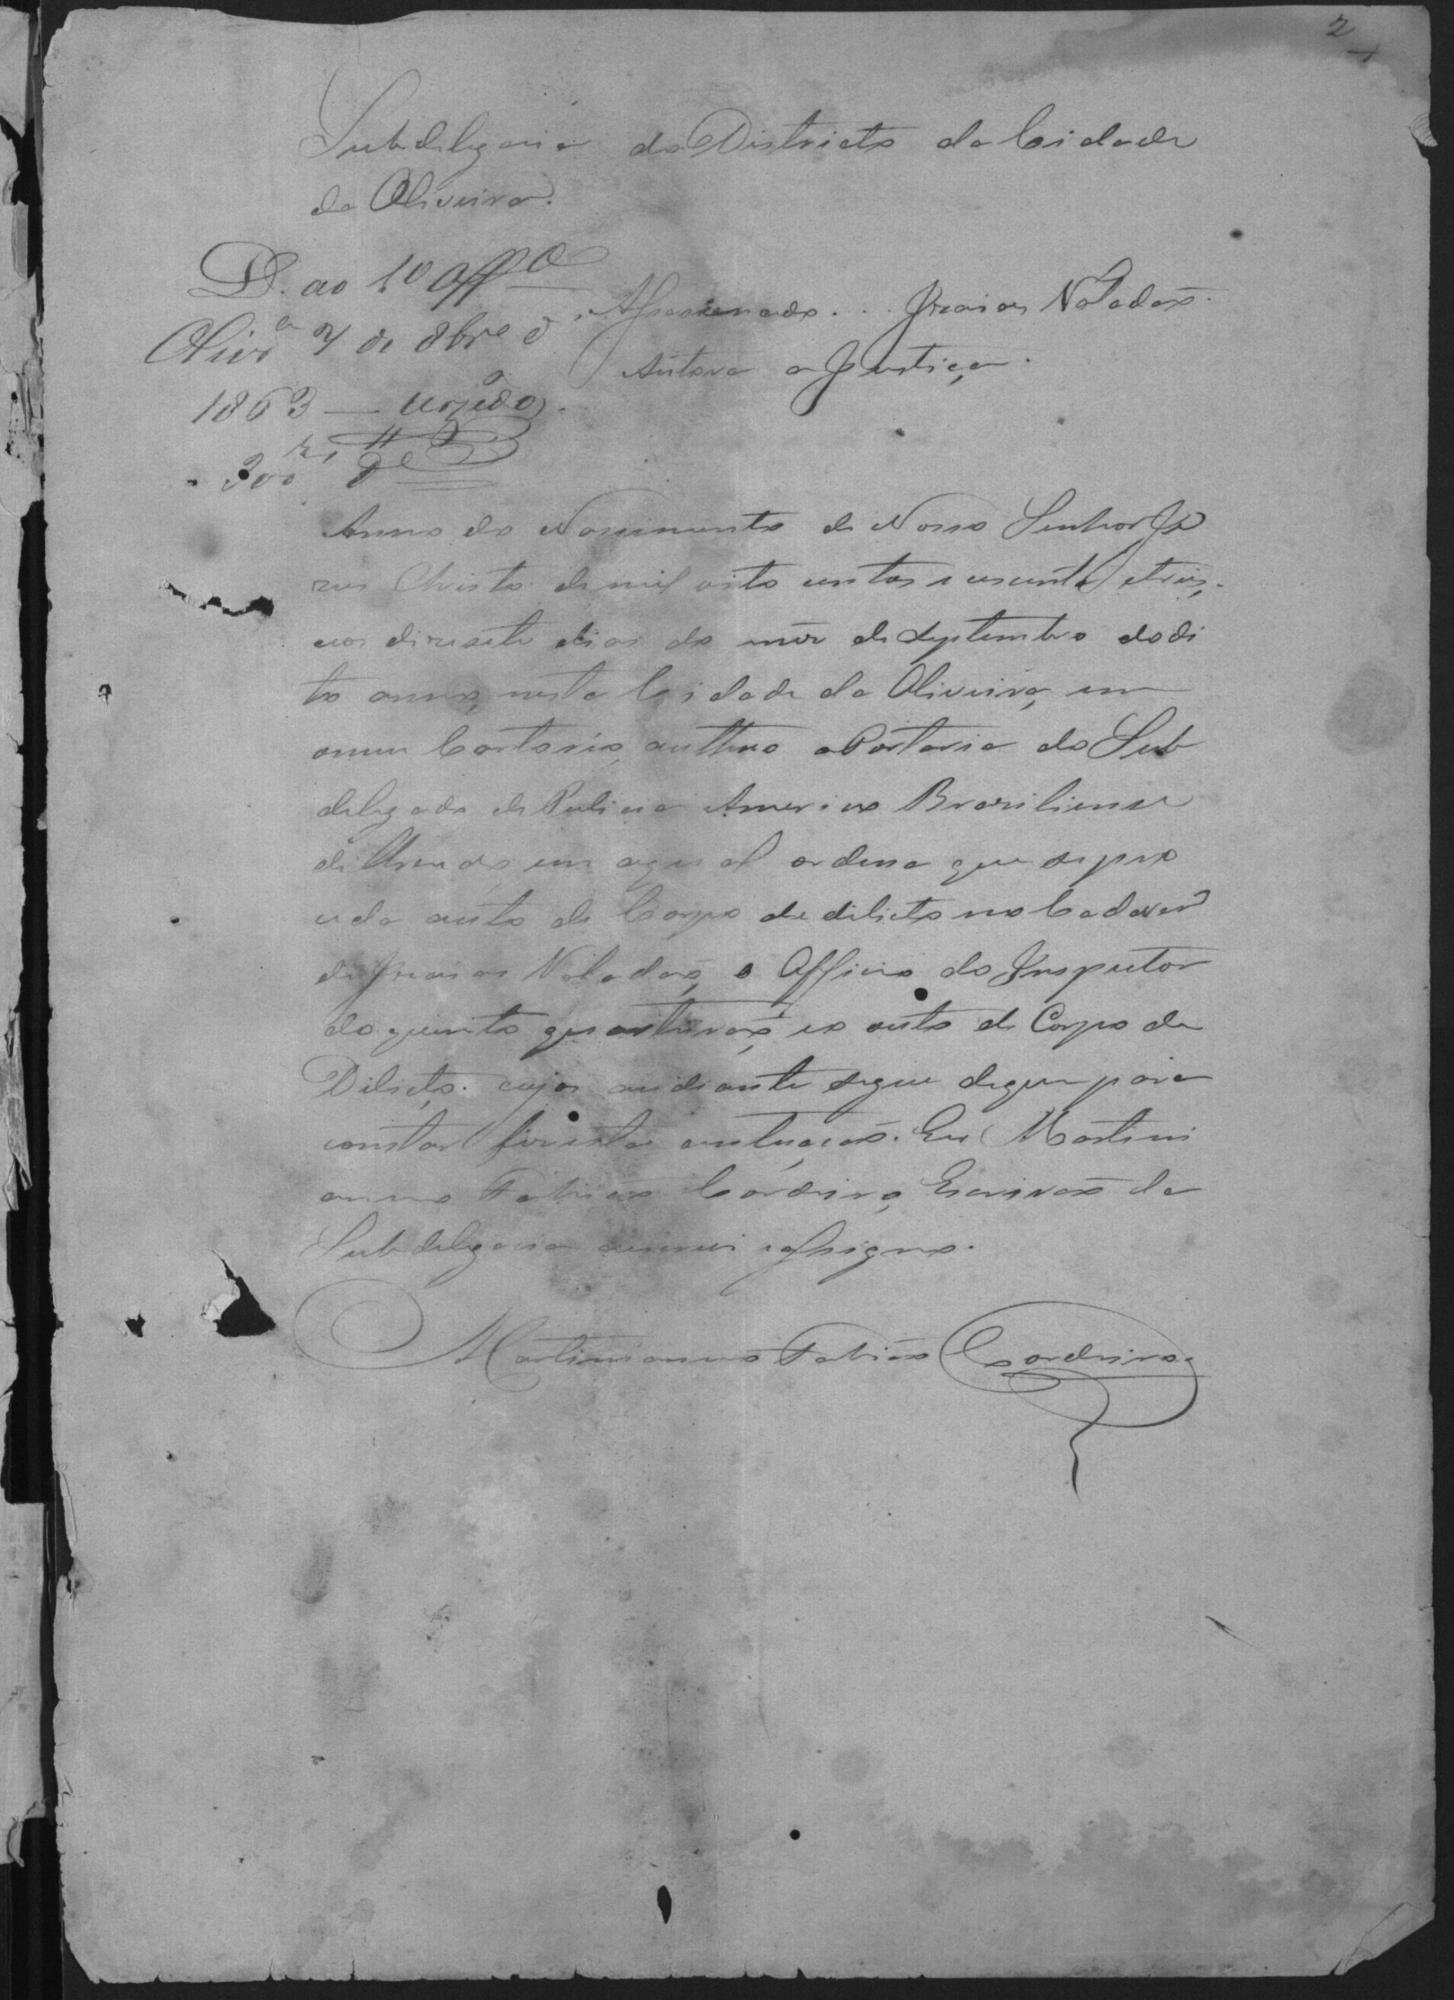 2
Subdelegacia do Districto da Cidade
da Oliveira.
D. ao 1º Offº
Olivrª 7 de 8brº d
1863
300 rs
Autora a Justiça.
Anno do Nascimento de Nosso Senhor Je
zus Christo de mil oito centos e secenta e treis,
aos dizesete dias do mêz de Septembro do di
to anno, nesta Cidade da Oliveira, em
o meu Cartorio, authuo a Portaria do Sub
delegado de Policia Americo Braziliense
de em a qual ordena que se pro
ceda auto de Corpo de dilicto no Cadaver
de o Officio do Inspector
do quinto quarteirão, e o auto de Corpo de
Dilicto. cujos aodiante segue de que para
constar fiz esta autuacão. Eu Martini
anno Fabião Cordeiro, Escrivão da
Subdelegacia escrevi e assigno.
Martinianno Fabião Cordeiro